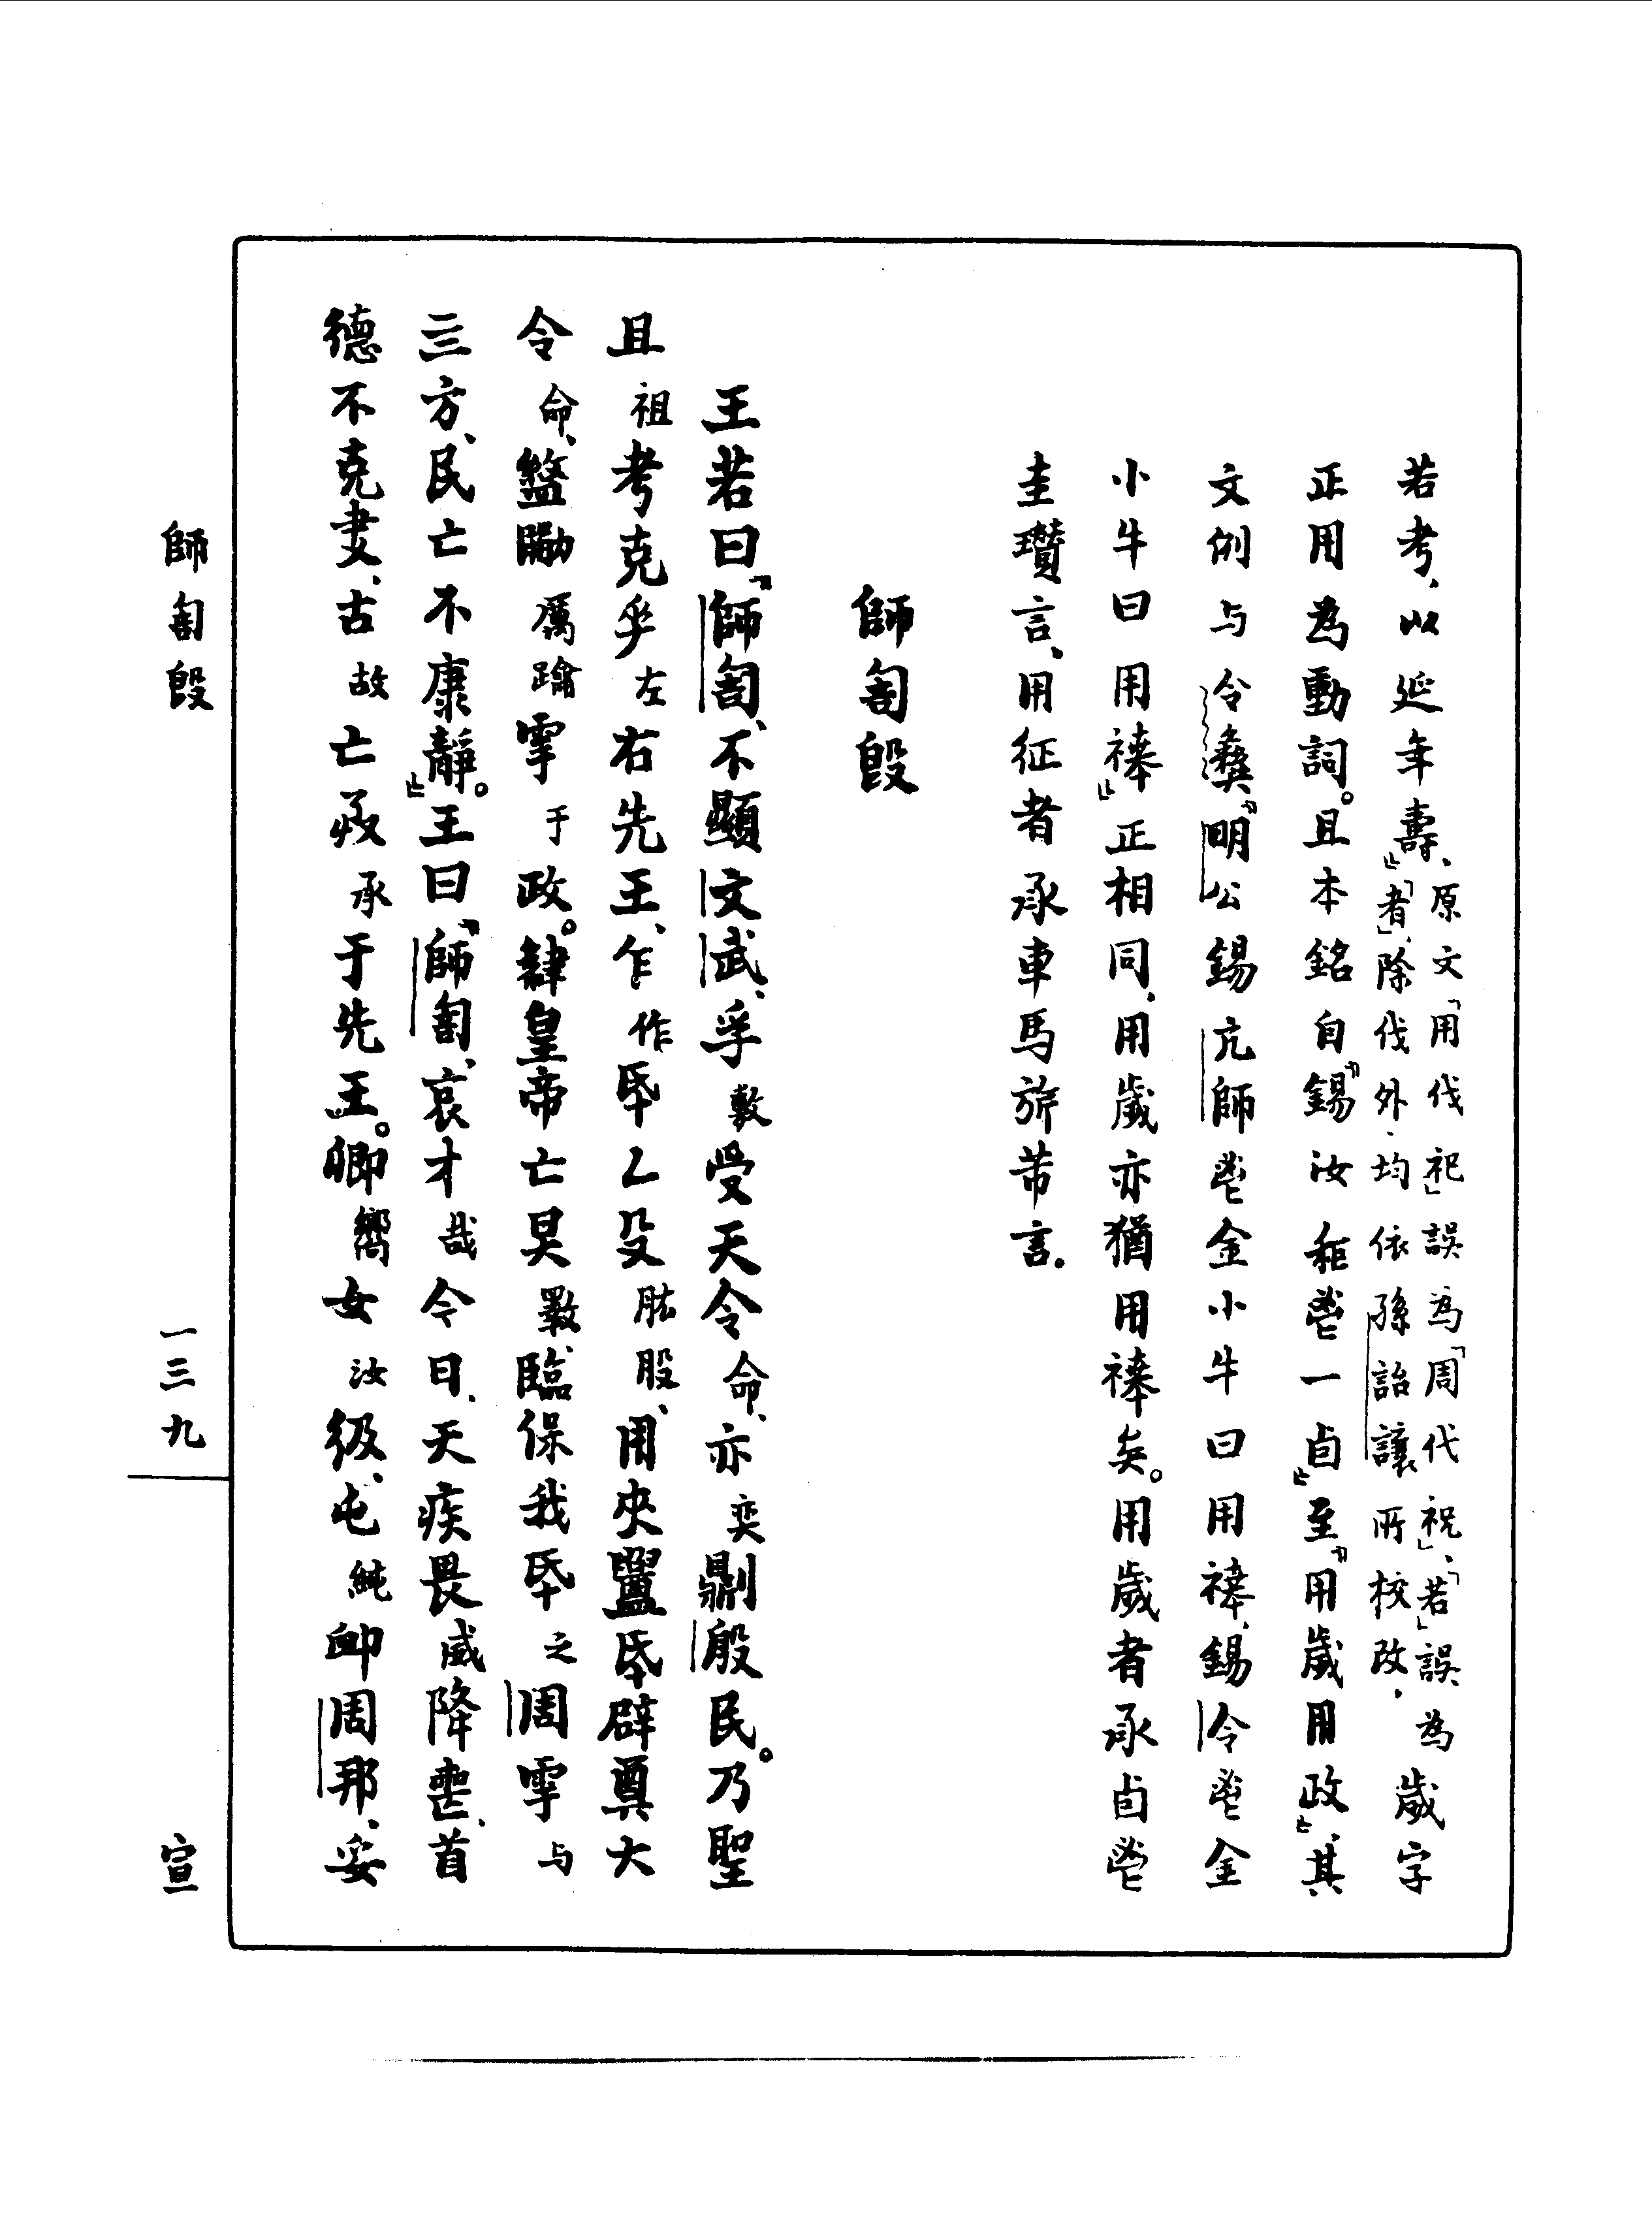 若考、以延年壽」、原文「用伐祀」誤為「周代祝」、「若」誤為「者」、除伐外、均依孫詒讓所校改，歲字
正用為動詞。且本銘自「錫汝秬鬯一卣」至「用歲用政」、其
文例与令彝「明公錫亢師鬯金小牛曰用𥛅、錫令鬯金
小牛曰用𥛅」正相同、用歲亦猶用𥛅矣。用歲者承卣鬯
圭瓚言、用征者承車馬旂芾言。
師匍𣪘
王若曰「師匍、不顯文武、孚敷受天令命、亦奕鼎殷民。乃聖
且祖考克左右先王、乍作氒厷肱股、用夾𥃝氒辟奠大
令命、盭龢雩于政。肆皇帝亡昊斁、臨保我氒之周雩与
三方、民亡不康靜」。王曰「師匍、哀才哉今日、天疾畏威降喪、首
德不克𡕩、古故亡承于先王。鄉嚮女汝彶、屯純卹周邦、妥
師匍𣪘
一三九
宣